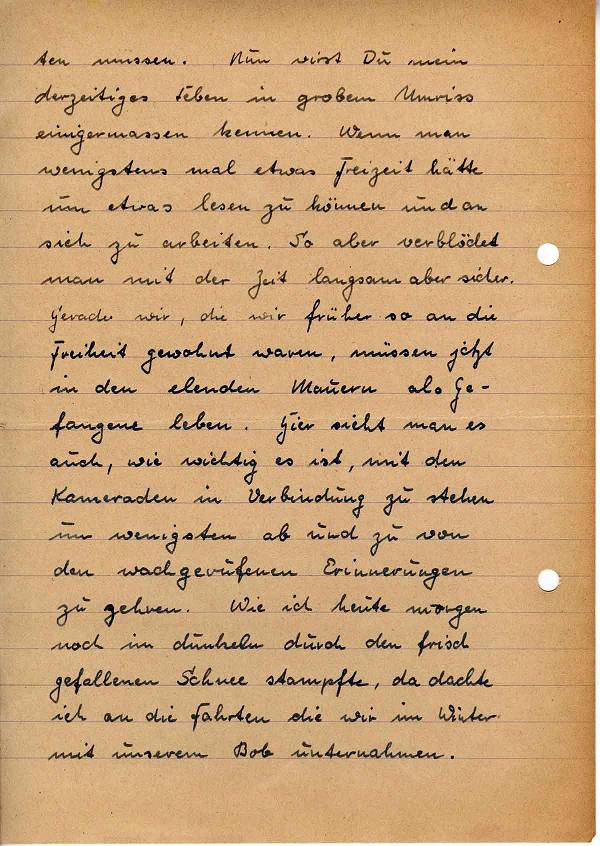 ten müssen. Nun wirst Du mein
derzeitiges Leben in grobem Umriss
einigermassen kennen. Wenn man
wenigstens mal etwas Freizeit hätte
um etwas lesen zu können und an
sich zu arbeiten. So aber verblödet
man mit der Zeit langsam aber sicher.
Gerade wir, die wir früher so an die
Freiheit gewohnt waren, müssen jetzt
in den elenden Mauern als Ge-
fangene leben. Hier sieht man es
auch, wie wichtig es ist, mit den
Kameraden in Verbindung zu stehen
um wenigsten ab und zu von
den wachgerufenen Erinnerungen
zu zehren. Wie ich heute morgen
noch im dunkeln durch den frisch
gefallenen Schnee stampfte, da dachte
ich an die Fahrten die wir im Winter
mit unserem Bob unternahmen.